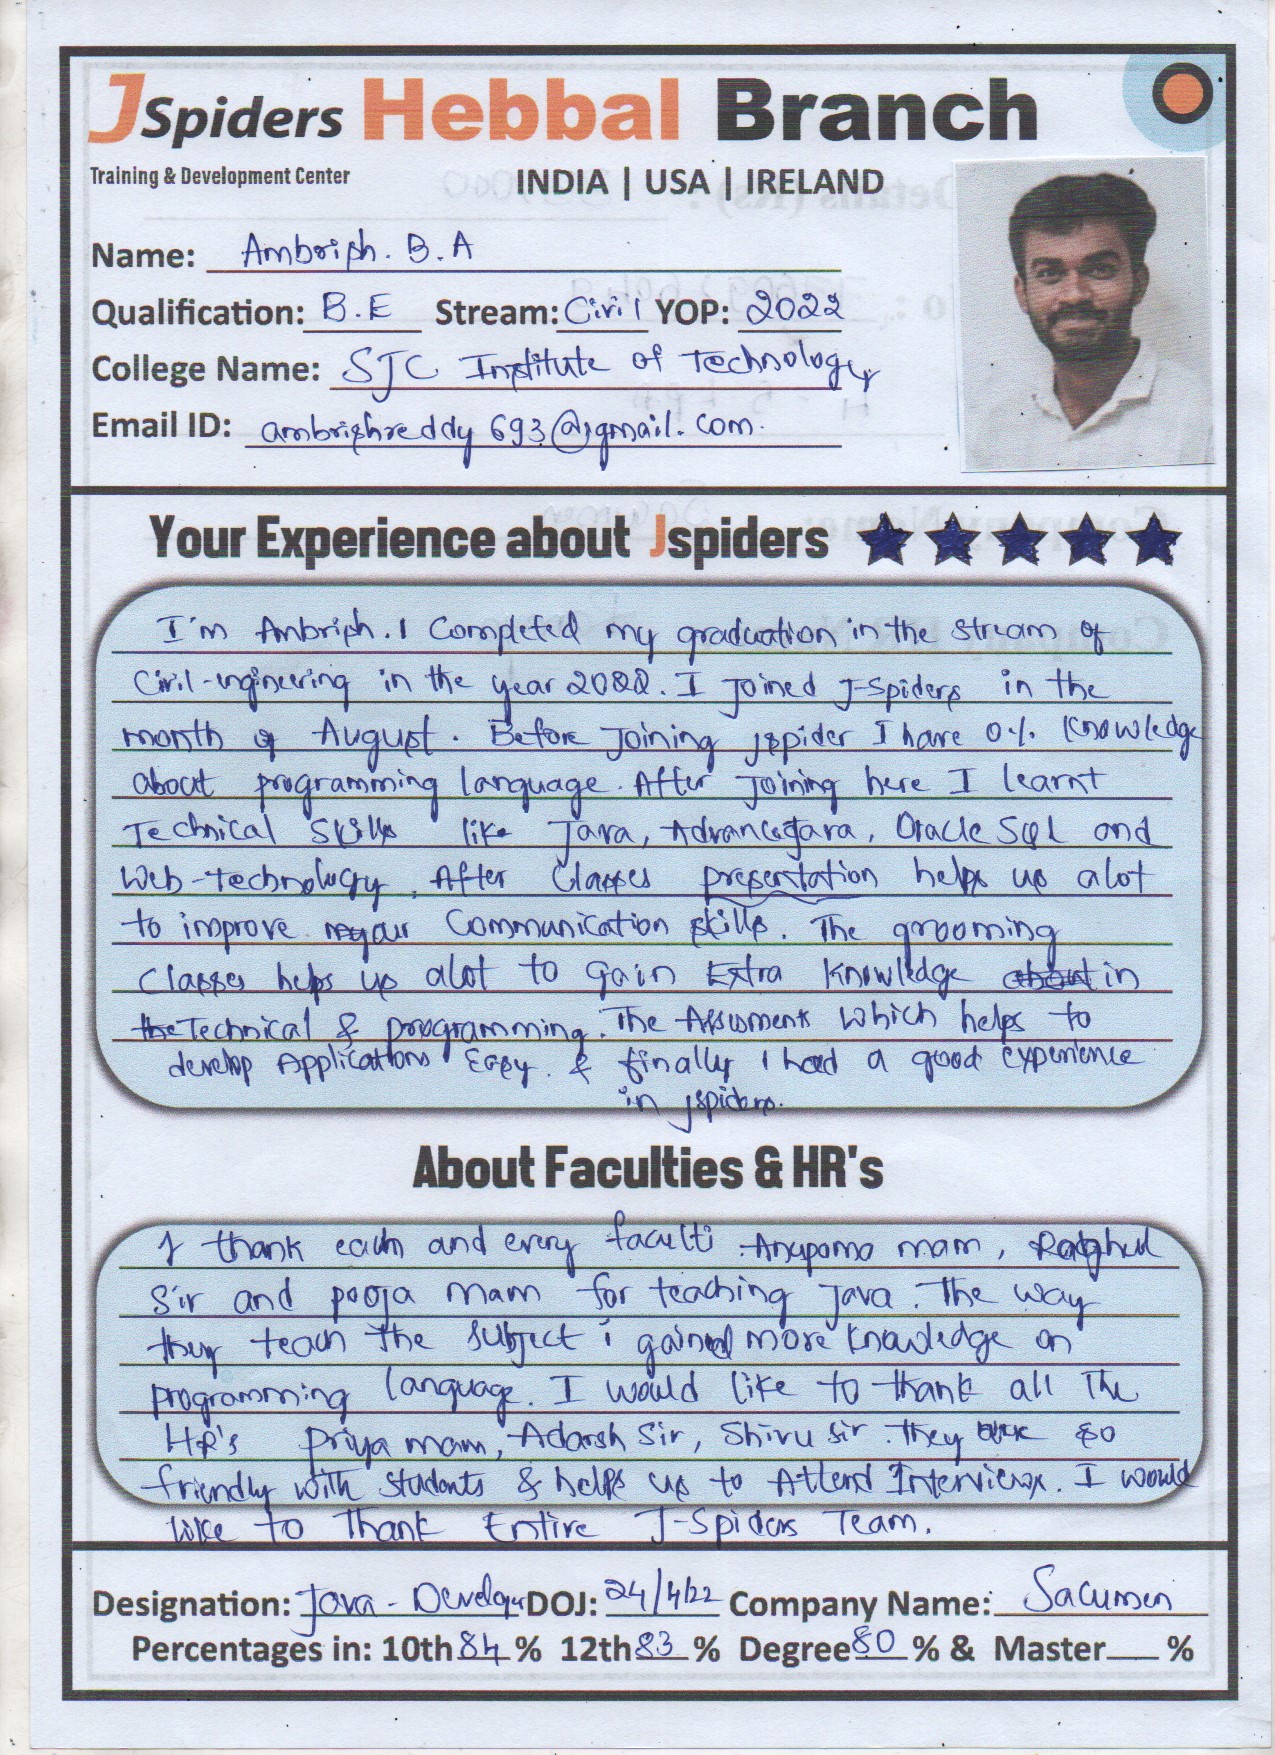 JSpiders Hebbal Branch
Training & Development Center INDIA | USA | IRELAND
Name: Ambrish. B. A
Qualification: B.E Stream: Civil YOP: 2022
College Name: SJC Institute of Technology
Email ID: ambrishreddy693@gmail.com.
Your Experience about Jspiders
I'm Ambrish. I Completed my graduation in the stream of
Civil-engineering in the year 2022. I joined J-Spiders in the
month of August. Before joining jspider I have 0% knowledge
about programming language. After joining here I learnt
Technical skills like Java, Advance Java, Oracle SQL and
Web-technology. After Classes presentation helps us alot
to improve our Communication skills. The grooming
Classes helps us alot to gain Extra knowledge about in
the Technical & programming. The Assesments which helps to
develop Applications Easy. & finally I had a good experience
in jspiders.
About Faculties & HR's
I thank each and every faculti Anupama mam, Raghul
Sir and pooja mam for teaching Java. The way
they teach the subject i gained more knowledge on
programming language. I would like to thank all The
HR's Priya mam, Adarsh Sir, Shivu sir. They are so
friendly with students & helps us to Attend Interviews. I would
like to Thank Entire J-Spiders Team.
Designation: Java - Developer DOJ: 24/4/22 Company Name: Sacumen
Percentages in: 10th 84 % 12th 83 % Degree 80 % & Master %